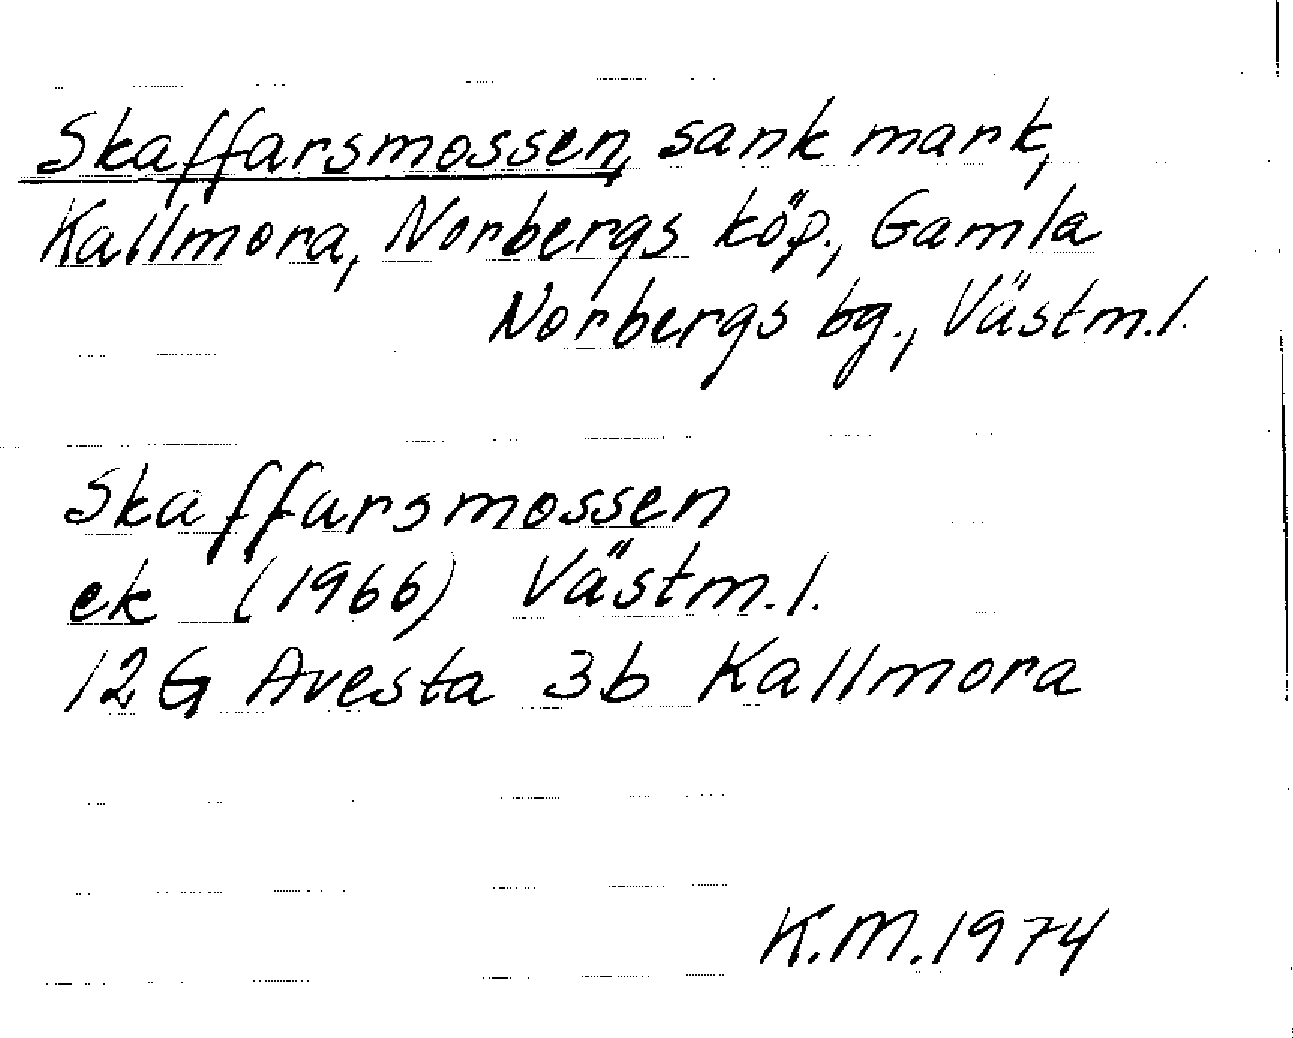 Skaffarsmossen, sank mark,
Kallmora, Norbergs köp., Gamla
Norbergs bg., Västm.l.
Skaffarsmossen
ek (1966) Västm.l.
12G Avesta 3b Kallmora
K.M.1974